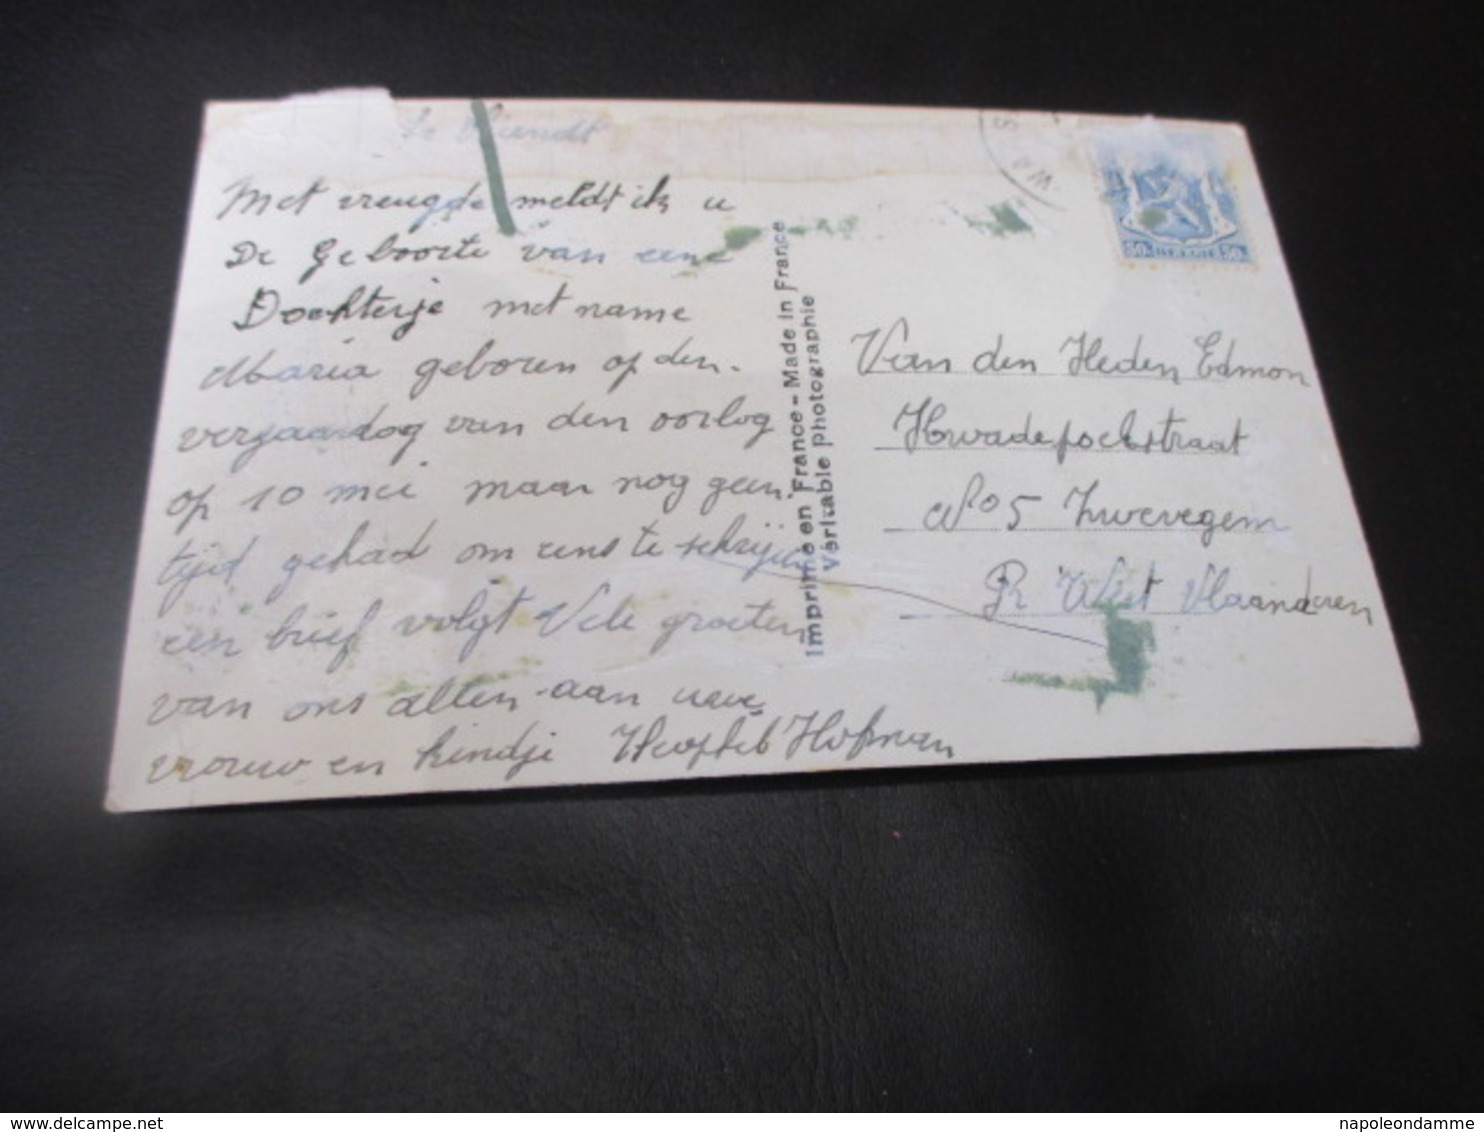 Met vreugde meldt ik u
De Geboorte van eene
Dochterje met name
Maria geboren op den.
verjaardag van den oorlog
op 10 mei maar nog geen
tijd gehad om eens te schrijven
een brief volgt Vele groeten
van ons allen aan uwe
vrouw en kindje Hofman
Imprimé en France - Made in France
Véritable Photographie
Van den Heden Edmon
Kwadepoelstraat
No 5 Zwevegem
West Vlaanderen
napoleondamme